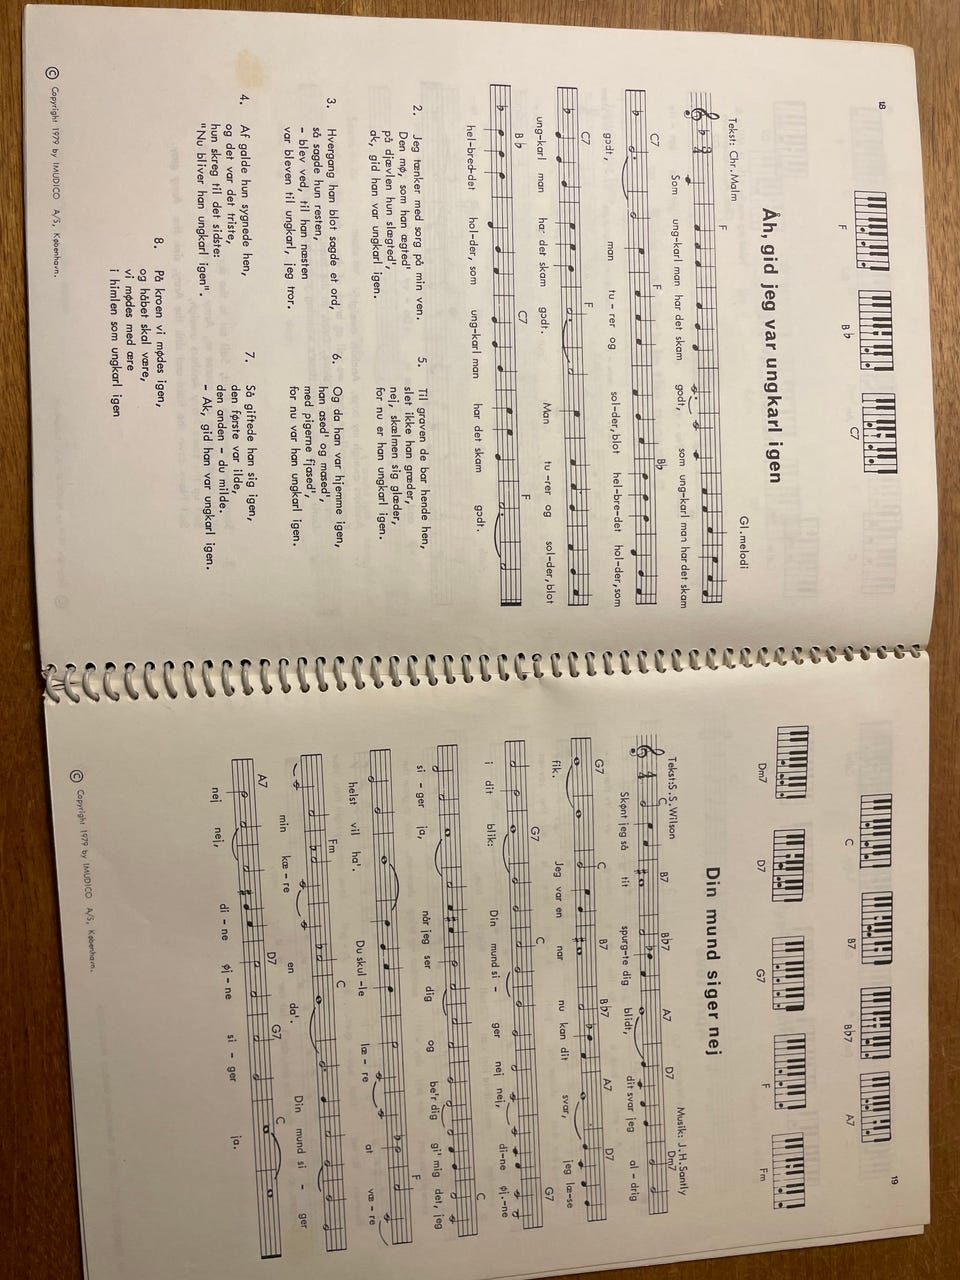 18
F B♭ C7
Åh, gid jeg var ungkarl igen
Tekst: Chr. Malm Gl. melodi
F
Som ung-karl man har det skam godt, som ung-karl man har det skam
C7 F B♭
godt, man tu-rer og sol-der, blot hel-bre-det hol-der, som
C7 F
ung-karl man har det skam godt. Man tu-rer og sol-der, blot
B♭ C7 F
hel-bred-det hol-der, som ung-karl man har det skam godt.
2. Jeg tænker med sorg på min ven.
Den mø, som han ægted'
på djævlen hun slægted',
ak, gid han var ungkarl igen.
3. Hvergang han blot sagde et ord,
så sagde hun resten,
- blev ved, til han næsten
var bleven til ungkarl, jeg tror.
4. Af galde hun sygnede hen,
og det var det triste,
hun skreg til det sidste:
"Nu bliver han ungkarl igen".
5. Til graven de bar hende hen,
slet ikke han græder,
nej, skælmen sig glæder,
for nu er han ungkarl igen.
6. Og da han var hjemme igen,
han ased' og mased',
med pigerne fjased',
for nu var han ungkarl igen.
7. Så giftede han sig igen,
den første var ilde,
den anden - du milde.
- Ak, gid han var ungkarl igen.
8. På kroen vi mødes igen,
og håbet skal være,
vi mødes med ære
i himlen som ungkarl igen
© Copyright 1979 by IMUDICO A/S, København.
19
C B7 B♭7 A7
Dm7 D7 G7 F Fm
Din mund siger nej
Tekst: S. S. Wilson Musik: J. H. Santly
C B7 B♭7 A7 D7 Dm7
Skønt jeg så tit spurg-te dig blidt, dit svar jeg al-drig
G7 C B7 B♭7 A7 D7
fik. Jeg var en nar nu kan dit svar, jeg læ-se
G7 C G7
i dit blik: Din mund si - ger nej nej, di-ne øj-ne
C
si - ger ja, når jeg ser dig og be'r dig gi' mig det, jeg
F
helst vil ha'. Du skul-le læ - re at væ - re
Fm C
min kæ - re en da'. Din mund si - ger
A7 D7 G7 C
nej nej, di - ne øj - ne si - ger ja.
© Copyright 1979 by IMUDICO A/S, København.